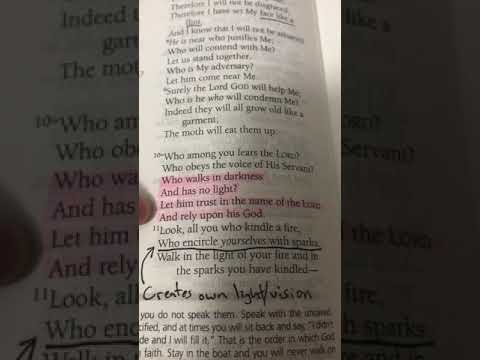 Therefore I will not be disgraced;
Therefore I have set My face like a
flint,
And I know that I will not be ashamed.
He is near who justifies Me;
Who will contend with Me?
Let us stand together.
Who is My adversary?
Let him come near Me.
Surely the Lord GOD will help Me;
Who is he who will condemn Me?
Indeed they will all grow old like a
garment;
The moth will eat them up.
10"Who among you fears the LORD?
Who obeys the voice of His Servant?
Who walks in darkness
And has no light?
Let him trust in the name of the LORD
And rely upon his God.
11Look, all you who kindle a fire,
Who encircle yourselves with sparks:
Walk in the light of your fire and in
the sparks you have kindled—
Creates own light/vision
you do not speak them. Speak with the unsaved,
cified, and at times you will sit back and say, "I didn't
de and I will fill it." That is the order in which God
faith. Stay in the boat and you will never walk on